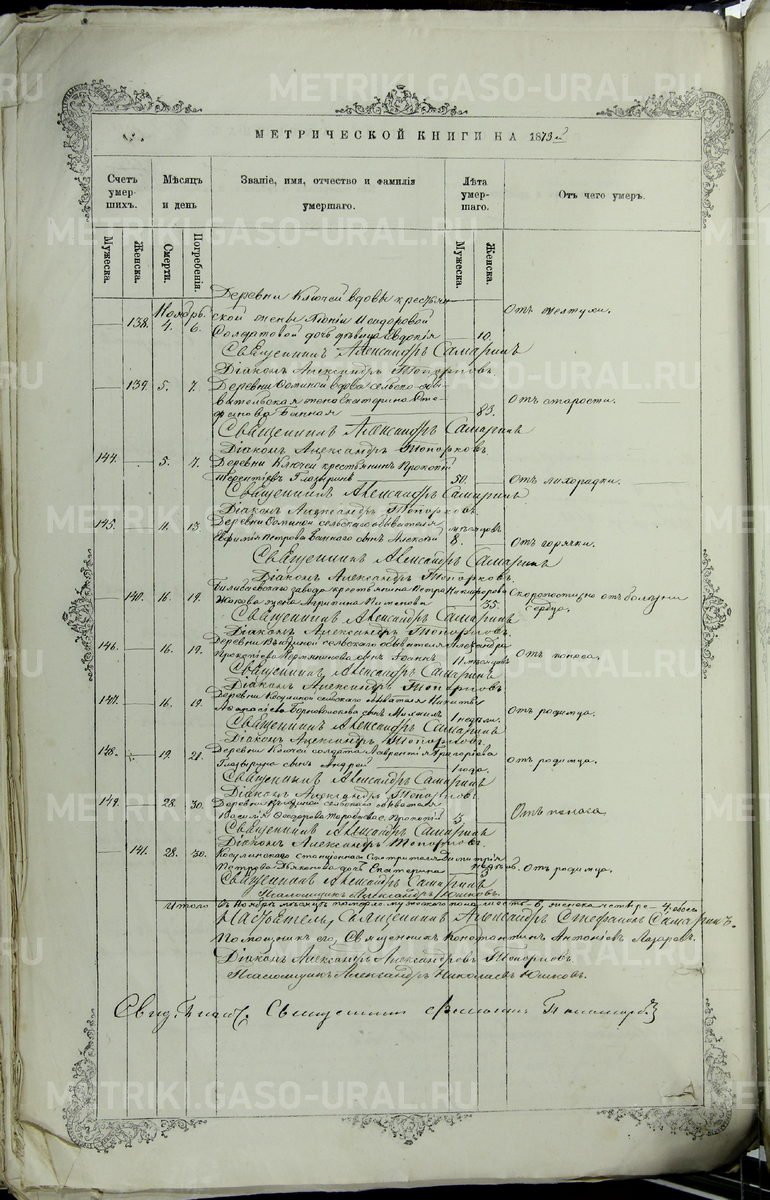 METRIKI.GASO-URAL.RU
МЕТРИЧЕСКОЙ КНИГИ НА 1873 г.
Счетъ умер- шихъ.
Мѣсяцъ и день
Званіе, имя, отчество и фамилія умершаго.
Лѣта умер- шаго.
Отъ чего умеръ.
Мужеска. Женска. Смерти. Погребенія. Мужеска. Женска.
Деревни Ключей вдовы крестьян-
138. Ноябрь 4. 6. ской жены Исидоровой Отъ желтухи.
Солдатовой дочь дѣвица Евдокія 10.
Священникъ Александръ Самаринъ
Діаконъ Александръ Топорковъ
139. 5. 7. Деревни вдова сельско оби-
вательская жена Екатерина Сте- Отъ старости.
фанова Банная 83.
Священникъ Александръ Самаринъ
Діаконъ Александръ Топорковъ
144. 5. 7. Деревни Ключей крестьянинъ Прокопій
Терентіевъ Глазыринъ 50. Отъ лихорадки.
Священникъ Александръ Самаринъ
Діаконъ Александръ Топорковъ
145. 11. 13. Деревни сельскаго обывателя мѣсяцовъ
Евфимія Петрова Баннаго сынъ Алексій 8. Отъ горячки.
Священникъ Александръ Самаринъ
Діаконъ Александръ Топорковъ
140. 16. 19. Билимбаевскаго завода крестьянина Петра Никифорова Скоропостижно отъ болезни
жена Агрипина Пименова 35. сердца.
Священникъ Александръ Самаринъ
Діаконъ Александръ Топорковъ
146. 16. 19. Деревни сельскаго обывателя Александра
Прокопіева сынъ Іоаннъ 11 мѣсяцовъ Отъ поноса.
Священникъ Александръ Самаринъ
Діаконъ Александръ Топорковъ
147. 16. 19. Деревни Косулиной сельскаго обывателя Никиты
Афанасіева сынъ Михаилъ 1 недѣли. Отъ родимца.
Священникъ Александръ Самаринъ
Діаконъ Александръ Топорковъ
148. 19. 21. Деревни Ключей солдата Лаврентія Григоріева
Глазырина сынъ Андрей 1 года. Отъ родимца.
Священникъ Александръ Самаринъ
Діаконъ Александръ Топорковъ
149. 28. 30. Деревни сельскаго обывателя
Василія Ѳеодорова с. Прокопій 5. Отъ поноса
Священникъ Александръ Самаринъ
Діаконъ Александръ Топорковъ
141. 28. 30. Косулинскаго Станціоннаго Смотрителя Димитрія
Петрова Дьяконова дочь Екатерина 3 Отъ родимца.
Священникъ Александръ Самаринъ
Псаломщикъ Александръ Юшковъ.
Итого въ Ноябрѣ мѣсяцѣ мужеска пола шесть - 6, женска четыре - 4, обоего
Настоятель, Священникъ Александръ Стефановъ Самаринъ.
Помощникъ его, Священникъ Константинъ Антоніевъ Лазаревъ.
Діаконъ Александръ Александровъ Топорковъ
Псаломщикъ Александръ Николаевъ Юшковъ.
Священникъ